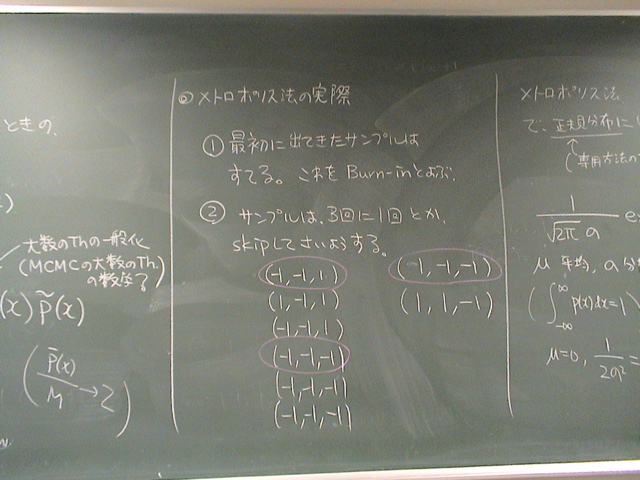 ときの、
)
大数のThの一般化
(MCMCの大数のTh.
の数学了)
(x)P̃(x)
(P̃(x)/M → Z)
◎メトロポリス法の実際
① 最初に出てきたサンプルは
すてる。これを Burn-inとよぶ.
② サンプルは、3回に1回とか、
skipしてさいようする。
(-1,-1,1)
(1,-1,1)
(-1,-1,1)
(-1,-1,-1)
(-1,-1,-1)
(-1,-1,-1)
(-1,-1,-1)
(1,1,-1)
メトロポリス法
で、正規分布に
(専用方法の
1/√2π a e
μ 平均, a 分
(∫_{-∞}^{∞} p(x)dx=1
μ=0, 1/2a² =